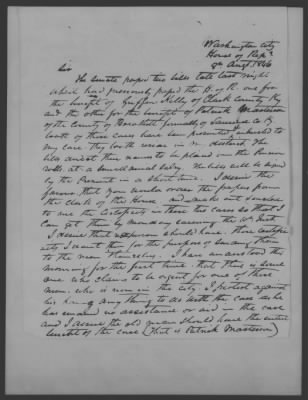 Washington City
House of Reps
9th Augt. 1846
Sir
The Senate passed two bills late last night
which had previously passed the H. of R. one for
the benefit of Griffin Kelly of Clark County Ky
and the other for the benefit of Patrick Masterson
of the County of formerly of County Ky
both of these cases have been entrusted to
my care. They both versus in my district. The
bills direct their names to be placed on the Pension
rolls at a small annual . The bills will be signed
by the President in a short time. I desire the
favor, that you would order the papers from
the Clerk of the House and make out & enclose
to me the Certificates in these two cases so that I
can get them by monday
I desire that no person should have these certificates
City. I want them for the purpose of sending them
to the men themselves. I have understood this
morning for the first time, that there is some
one who claims to be agent for one of these
men, who is now in the city. I protest against
his having any thing to do with the case as he
has rendered no assistance or aid in the case
and I desire the old man should have the entire
benefit of the case (That is Patrick Masterson)